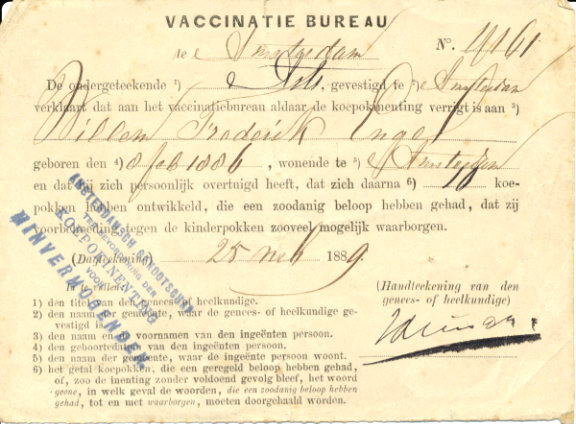 VACCINATIE BUREAU
te Amsterdam N°.
De ondergeteekende ¹) Arts, gevestigd te ²) Amsterdam
verklaart dat aan het vaccinatiebureau aldaar de koepokinenting verrigt is aan ³)
Willem Frederik Engel
geboren den ⁴) 8 feb 1886, wonende te ⁵) Amsterdam
en dat hij zich persoonlijk overtuigd heeft, dat zich daarna ⁶) koe-
pokken hebben ontwikkeld, die een zoodanig beloop hebben gehad, dat zij
voorbehoeding tegen de kinderpokken zooveel mogelijk waarborgen.
(Dagteekening) 25 1889.
(Handteekening van den
genees- of heelkundige)
In te vullen:
1) den titel van den genees- of heelkundige.
2) den naam der gemeente, waar de genees- of heelkundige ge-
vestigd is.
3) den naam en de voornamen van den ingeënten persoon.
4) den geboortedatum van den ingeënten persoon.
5) den naam der gemeente, waar de ingeënte persoon woont.
6) het getal koepokken, die een geregeld beloop hebben gehad,
of, zoo de inenting zonder voldoend gevolg bleef, het woord
geene, in welk geval de woorden, die een zoodanig beloop hebben
gehad, tot en met waarborgen, moeten doorgehaald worden.
AMSTERDAMSCH GENOOTSCHAP
TER BEVORDERING DER
KOEPOKINENTING
VOOR
MINVERMOGENDEN.